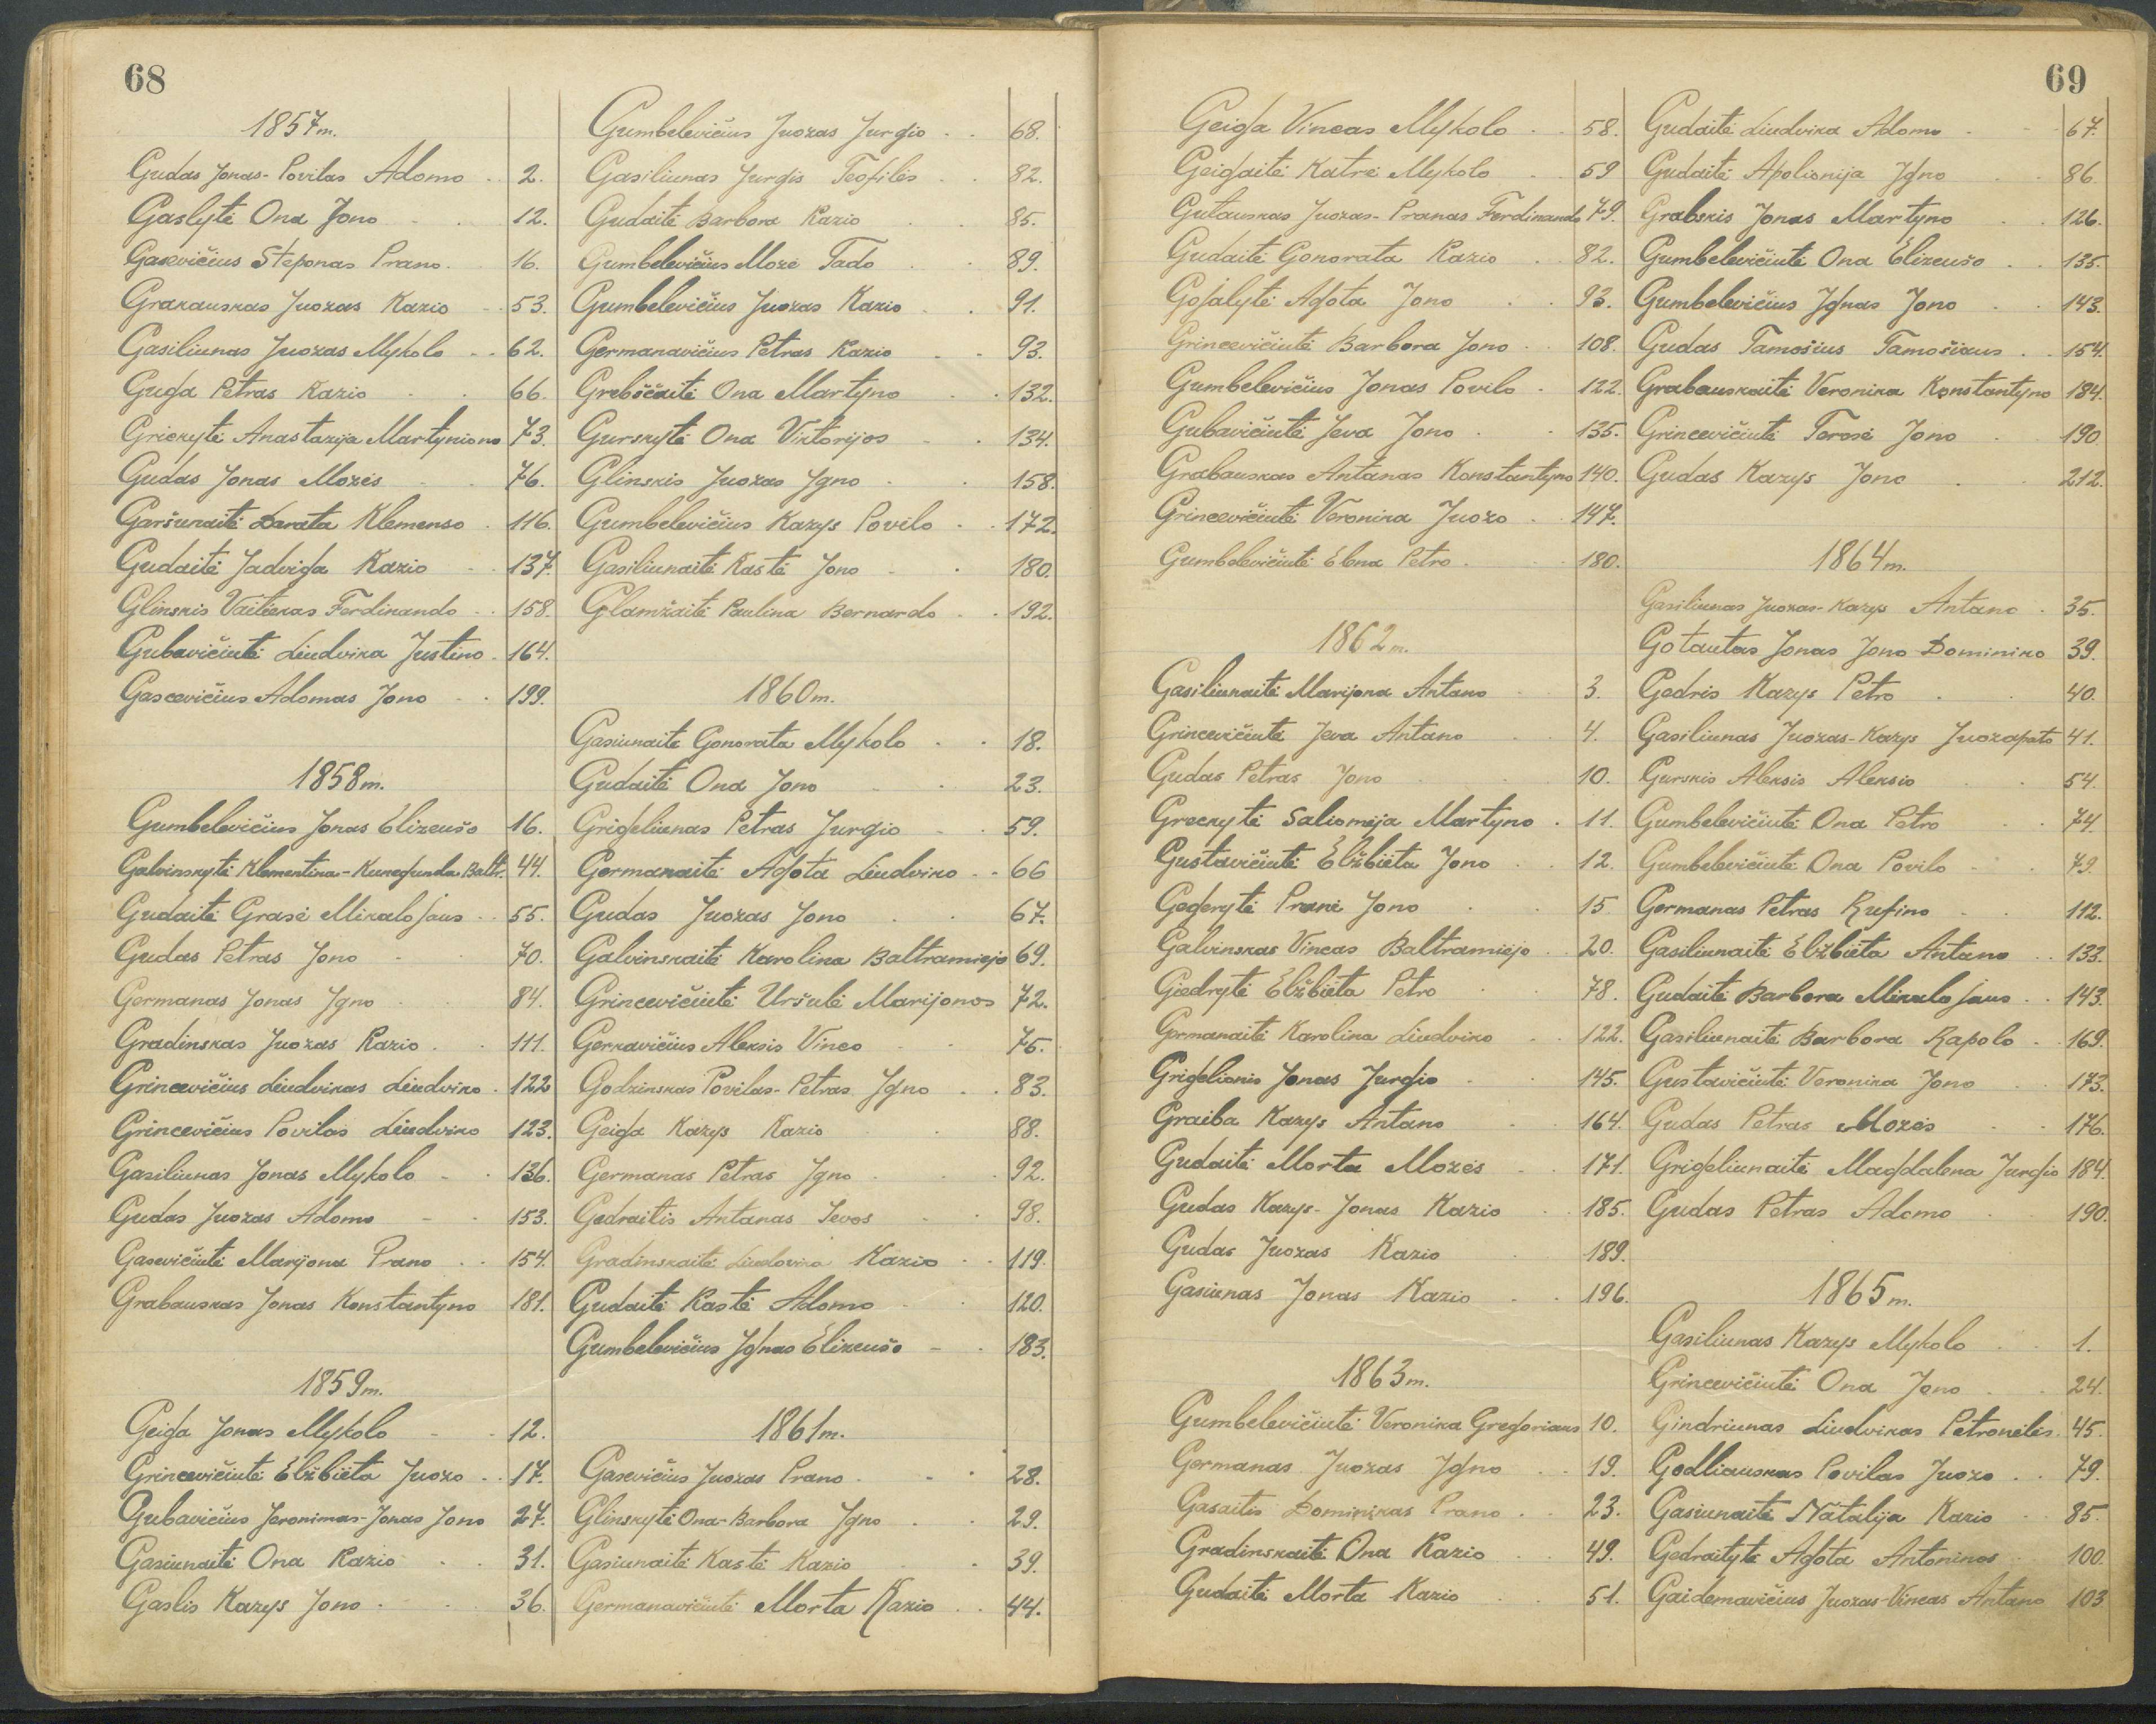 68
1857 m.
Gudas Jonas-Povilas Adomo 2.
Gaslytė Ona Jono 12.
Gasevičius Steponas Prano. 16.
Grakauskas Juozas Kazio 53.
Gasiliunas Juozas Mykolo 62.
Guga Petras Kazio 66.
Grickytė Anastazija Martyniono 73.
Gudas Jonas Mozės 76.
Garšunaitė Darata Klemenso 116.
Gudaitė Jadviga Kazio 137.
Glinskis Vaitiekas Ferdinando 158.
Gubavičiutė Liudvika Justino 164.
Gascevičius Adomas Jono 199.
1858 m.
Gumbelevičius Jonas Elizeušo 16.
Galvinskytė Klementina-Kunegunda Baltr. 44.
Gudaitė Grasė Mikalojaus 55.
Gudas Petras Jono 70.
Germanas Jonas Igno 84.
Gradinskas Juozas Kazio 111.
Grincevičius Liudvikas Liudviko 122
Grincevičius Povilas Liudviko 123.
Gasiliunas Jonas Mykolo 136.
Gudas Juozas Adomo 153.
Gasevičiutė Marijona Prano 154.
Grabauskas Jonas Konstantyno 181.
1859 m.
Geiga Jonas Mykolo 12.
Grincevičiutė Elžbiėta Juozo 17.
Gubavičius Jeronimas-Jonas Jono 27.
Gasiunaitė Ona Kazio 31.
Gaslis Kazys Jono 36.
Gumbelevičius Juozas Jurgio 68.
Gasiliunas Jurgis Teofilės 82.
Gudaitė Barbora Kazio 85.
Gumbelevičius Mozė Tado 89.
Gumbelevičius Juozas Kazio 91.
Germanavičius Petras Kazio 93.
Grebščaitė Ona Martyno 132.
Gurskytė Ona Viktorijos 134.
Glinskis Juozas Igno 158.
Gumbelevičius Kazys Povilo 172.
Gasiliunaitė Kastė Jono 180.
Glamžaitė Paulina Bernardo 192.
1860 m.
Gasiunaitė Gonorata Mykolo 18.
Gudaitė Ona Jono 23.
Grigeliunas Petras Jurgio 59.
Germanaitė Agota Liudviko 66
Gudas Juozas Jono 67.
Galvinskaitė Karolina Baltramiejo 69.
Grincevičiutė Uršulė Marijonos 72.
Gerkavičius Aleksis Vinco 75.
Godzinskas Povilas-Petras Igno 83.
Geiga Kazys Kazio 88.
Germanas Petras Igno 92.
Gedraitis Antanas Ievos 98.
Gradinskaitė Liudovika Kazio 119.
Gudaitė Kastė Adomo 120.
Gumbelevičius Ignas Elizeušo 183.
1861 m.
Gasevičius Juozas Prano 28.
Glinskytė Ona-Barbora Igno 29.
Gasiunaitė Kastė Kazio 39.
Germanavičiutė Morta Kazio 44.
69
Geiga Vincas Mykolo 58.
Geigaitė Katrė Mykolo 59
Gutauskas Juozas-Pranas Ferdinando 79.
Gudaitė Gonorata Kazio 82.
Gojalytė Agota Jono 93.
Grincevičiutė Barbora Jono 108.
Gumbelevičius Jonas Povilo 122.
Gubavičiutė Jeva Jono 135.
Grabauskas Antanas Konstantyno 140.
Grincevičiutė Veronika Juozo 147.
Gumbelevičiutė Elena Petro 180.
1862 m.
Gasiliunaitė Marijona Antano 3.
Grincevičiutė Jeva Antano 4.
Gudas Petras Jono 10.
Grecnytė Saliomėja Martyno 11.
Gustavičiutė Elžbiėta Jono 12.
Gegerytė Pranė Jono 15
Galvinskas Vincas Baltramiejo 20.
Giedrytė Elžbiėta Petro 78.
Germanaitė Karolina Liudviko 122.
Grigelionis Jonas Jurgio 145.
Graiba Kazys Antano 164.
Gudaitė Morta Mozės 171.
Gudas Kazys-Jonas Kazio 185.
Gudas Juozas Kazio 189.
Gasiunas Jonas Kazio 196.
1863 m.
Gumbelevičiutė Veronika Gregoriaus 10.
Germanas Juozas Igno 19.
Gasaitis Dominikas Prano 23.
Gradinskaitė Ona Kazio 49.
Gudaitė Morta Kazio 51.
Gudaitė Liudvika Adomo 67.
Gudaitė Apolionija Igno 86
Grabskis Jonas Martyno 126.
Gumbelevičiutė Ona Elizeušo 135.
Gumbelevičius Ignas Jono 143.
Gudas Tamošius Tamošiaus 154.
Grabauskaitė Veronika Konstantyno 184.
Grincevičiutė Teresė Jono 190
Gudas Kazys Jono 212.
1864 m.
Gasiliunas Juozas-Kazys Antano 35.
Gotautas Jonas Jono Dominiko 39.
Gedris Kazys Petro 40.
Gasiliunas Juozas-Kazys Juozapato 41.
Gurskis Aleksis Aleksio 54.
Gumbelevičiutė Ona Petro 74.
Gumbelevičiutė Ona Povilo 79.
Germanas Petras Rufino 112.
Gasiliunaitė Elžbiėta Antano 133.
Gudaitė Barbora Mikalojaus 143.
Gasiliunaitė Barbora Rapolo 169.
Gustavičiutė Veronika Jono 173.
Gudas Petras Mozės 176.
Grigeliunaitė Magdalena Jurgio 184.
Gudas Petras Adomo 190.
1865 m.
Gasiliunas Kazys Mykolo 1.
Grincevičiutė Ona Jono 24.
Gindriunas Liudvikas Petronėlės 45.
Godliauskas Povilas Juozo 79.
Gasiunaitė Natalija Kazio 85.
Gedraitytė Agota Antoninos 100.
Gaidemavičius Juozas-Vincas Antano 103